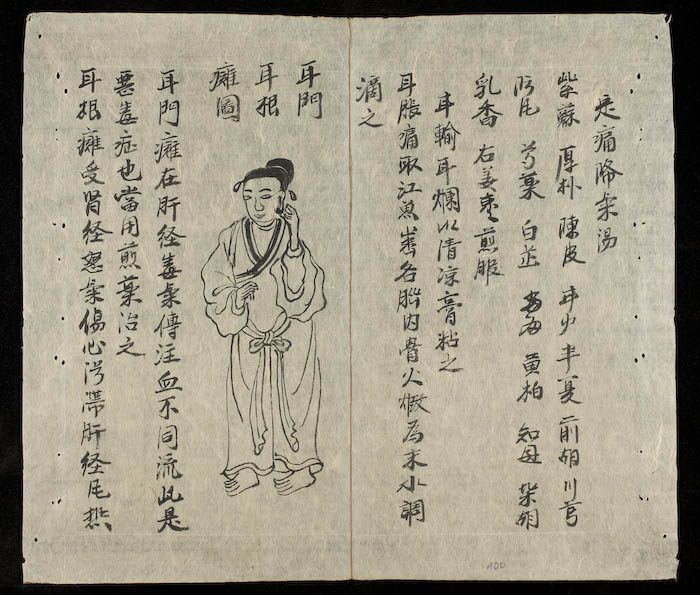 定痛降氣湯
柴蘇 厚朴 陳皮 甘少 半夏 前胡 川芎
防風 芍藥 白芷 黃柏 知母 柴胡
乳香 右姜枣煎服
耳輸耳爛以清凉膏粘之
耳脹痛取江魚 各腦内骨火煅為末水調
滴之
耳門
耳根
癰圖
耳門癰在肝経毒氣傳注血不同流此是
惡毒症也當用煎藥治之
耳根癰受腎経怒氣傷心 滯肝経風熱
100